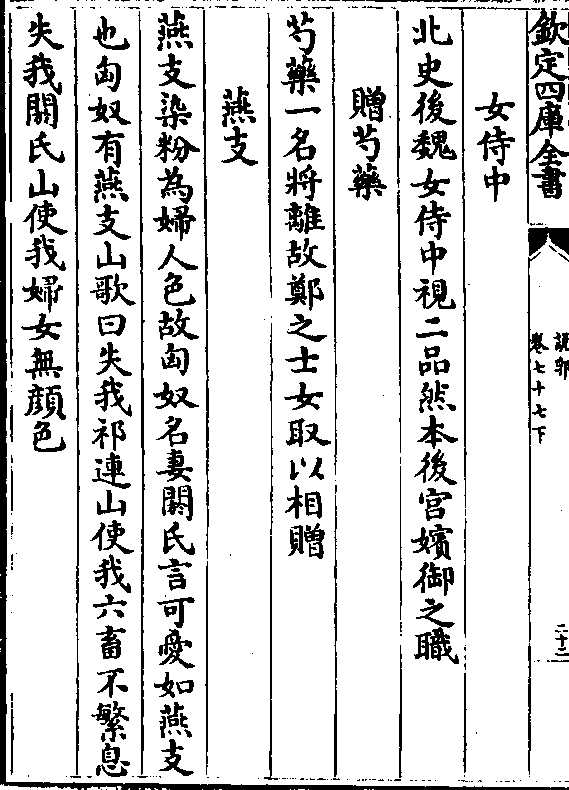 欽定四庫全書
說郛
卷七十七下
二十二
女侍中
北史後魏女侍中視二品然本後宮嬪御之職
贈芍藥
芍藥一名將離故鄭之士女取以相贈
燕支
燕支染粉為婦人色故匈奴名妻閼氏言可愛如燕支
也匈奴有燕支山歌曰失我祁連山使我六畜不繁息
失我閼氏山使我婦女無顔色